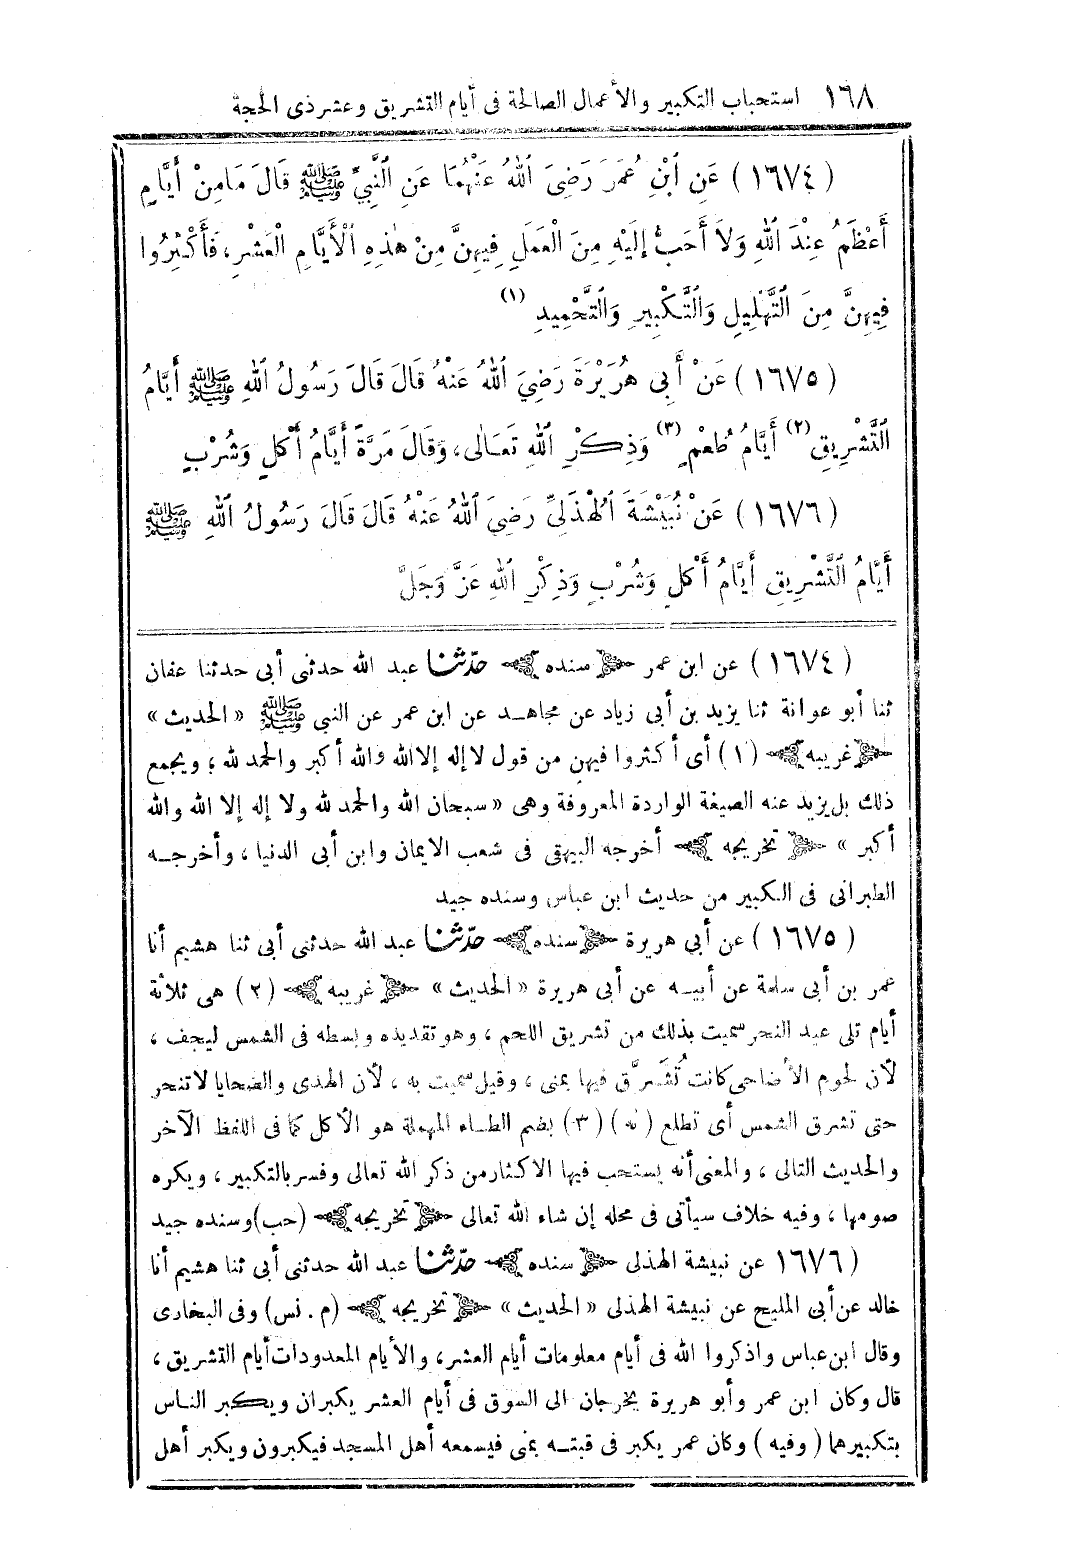 ١٦٨ استحباب التكبير والأعمال الصالحة فى أيام التشريق وعشر ذى الحجة
(١٦٧٤) عَنِ ٱبْنِ عُمَرَ رَضِىَ ٱللهُ عَنْهُمَا عَنِ ٱلنَّبِيِّ ﷺ قَالَ مَامِنْ أَيَّامٍ
أَعْظَمُ عِنْدَ ٱللهِ وَلاَ أَحَبُّ إِلَيْهِ مِنَ الْعَمَلِ فِيهِنَّ مِنْ هٰذِهِ ٱلْأَيَّامِ الْعَشْرِ، فَأَكْثِرُوا
فِيهِنَّ مِنَ ٱلتَّهْلِيلِ وَٱلتَّكْبِيرِ وَٱلتَّحْمِيدِ (١)
(١٦٧٥) عَنْ أَبِى هُرَيْرَةَ رَضِيَ ٱللهُ عَنْهُ قَالَ قَالَ رَسُولُ ٱللهِ ﷺ أَيَّامُ
ٱلتَّشْرِيقِ (٢) أَيَّامُ طُعْمٍ (٣) وَذِكْرِ ٱللهِ تَعَالَى، وَقَالَ مَرَّةً أَيَّامُ أَكْلٍ وَشُرْبٍ
(١٦٧٦) عَنْ نُبَيْشَةَ ٱلْهُذَلِيِّ رَضِيَ ٱللهُ عَنْهُ قَالَ قَالَ رَسُولُ ٱللهِ ﷺ
أَيَّامُ ٱلتَّشْرِيقِ أَيَّامُ أَكْلٍ وَشُرْبٍ وَذِكْرِ ٱللهِ عَزَّ وَجَلَّ
(١٦٧٤) عن ابن عمر ﴿سنده﴾ حدّثنا عبد الله حدثنى أبى حدثنا عفان
ثنا أبو عوانة ثنا يزيد بن أبى زياد عن مجاهد عن ابن عمر عن النبى ﷺ «الحديث»
﴿غريبه﴾ (١) أى أكثروا فيهن من قول لاإله إلاالله والله أكبر والحمد لله؛ ويجمع
ذلك بل يزيد عنه الصيغة الواردة المعروفة وهى «سبحان الله والحمد لله ولا إله إلا الله والله
أكبر» ﴿تخريجه﴾ أخرجه البيهقى فى شعب الايمان وابن أبى الدنيا، وأخرجه
الطبرانى فى الكبير من حديث ابن عباس وسنده جيد
(١٦٧٥) عن أبى هريرة ﴿سنده﴾ حدّثنا عبد الله حدثنى أبى ثنا هشيم أنا
عمر بن أبى سلمة عن أبيه عن أبى هريرة «الحديث» ﴿غريبه﴾ (٢) هى ثلاثة
أيام تلى عيد النحر سميت بذلك من تشريق اللحم، وهو تقديده وبسطه فى الشمس ليجف،
لأن لحوم الأضاحى كانت تُشَرَّق فيها بمنى، وقيل سميت به، لأن الهدى والضحايا لا تنحر
حتى تشرق الشمس أى تطلع (نه) (٣) بضم الطاء المهملة هو الأكل كما فى اللفظ الآخر
والحديث التالى، والمعنى أنه يستحب فيها الاكثار من ذكر الله تعالى وفسر بالتكبير، ويكره
صومها، وفيه خلاف سيأتى فى محله إن شاء الله تعالى ﴿تخريجه﴾ (حب) وسنده جيد
(١٦٧٦) عن نبيشة الهذلى ﴿سنده﴾ حدّثنا عبد الله حدثنى أبى ثنا هشيم أنا
خالد عن أبى المليح عن نبيشة الهذلى «الحديث» ﴿تخريجه﴾ (م . نس) وفى البخارى
وقال ابن عباس واذكروا الله فى أيام معلومات أيام العشر، والأيام المعدودات أيام التشريق،
قال وكان ابن عمر وأبو هريرة يخرجان الى السوق فى أيام العشر يكبران ويكبر الناس
بتكبيرهما (وفيه) وكان عمر يكبر فى قبته بمنى فيسمعه أهل المسجد فيكبرون ويكبر أهل